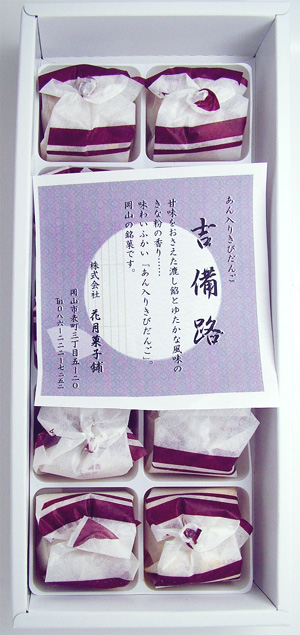 あん入りきびだんご
吉備路
甘味をおさえた漉し餡とゆたかな風味の
きな粉の香り……
味わいふかい「あん入りきびだんご」。
岡山の銘菓です。
株式会社 花月菓子舗
岡山市表町三丁目五-二〇
℡〇八六-二二二-七二五二